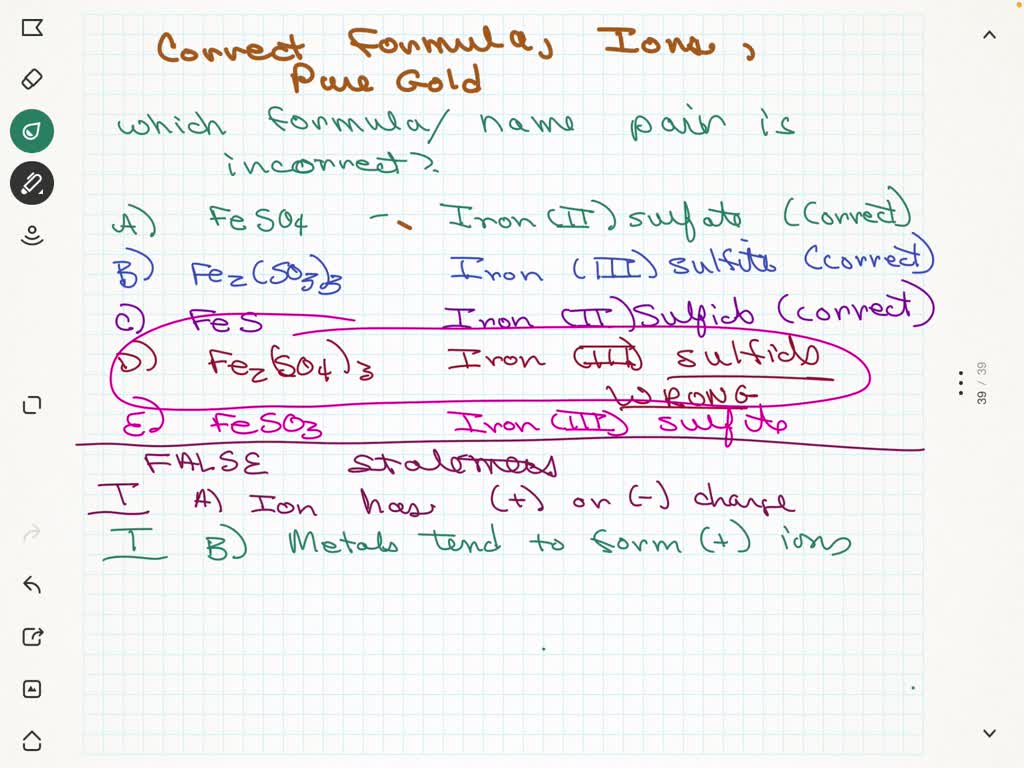 Correct Formula, Ions,
Pure Gold
which formula/ name pair is
incorrect?
A) FeSO4 - Iron (II) sulfate (Correct)
B) Fe2(SO3)3 Iron (III) sulfite (correct)
C) FeS Iron (II) Sulfide (correct)
D) Fe2(SO4)3 Iron (III) sulfide
WRONG
E) FeSO3 Iron (III) sulfite
FALSE statements
T A) Ion has (+) or (-) charge
T B) Metals tend to form (+) ions
39 / 39